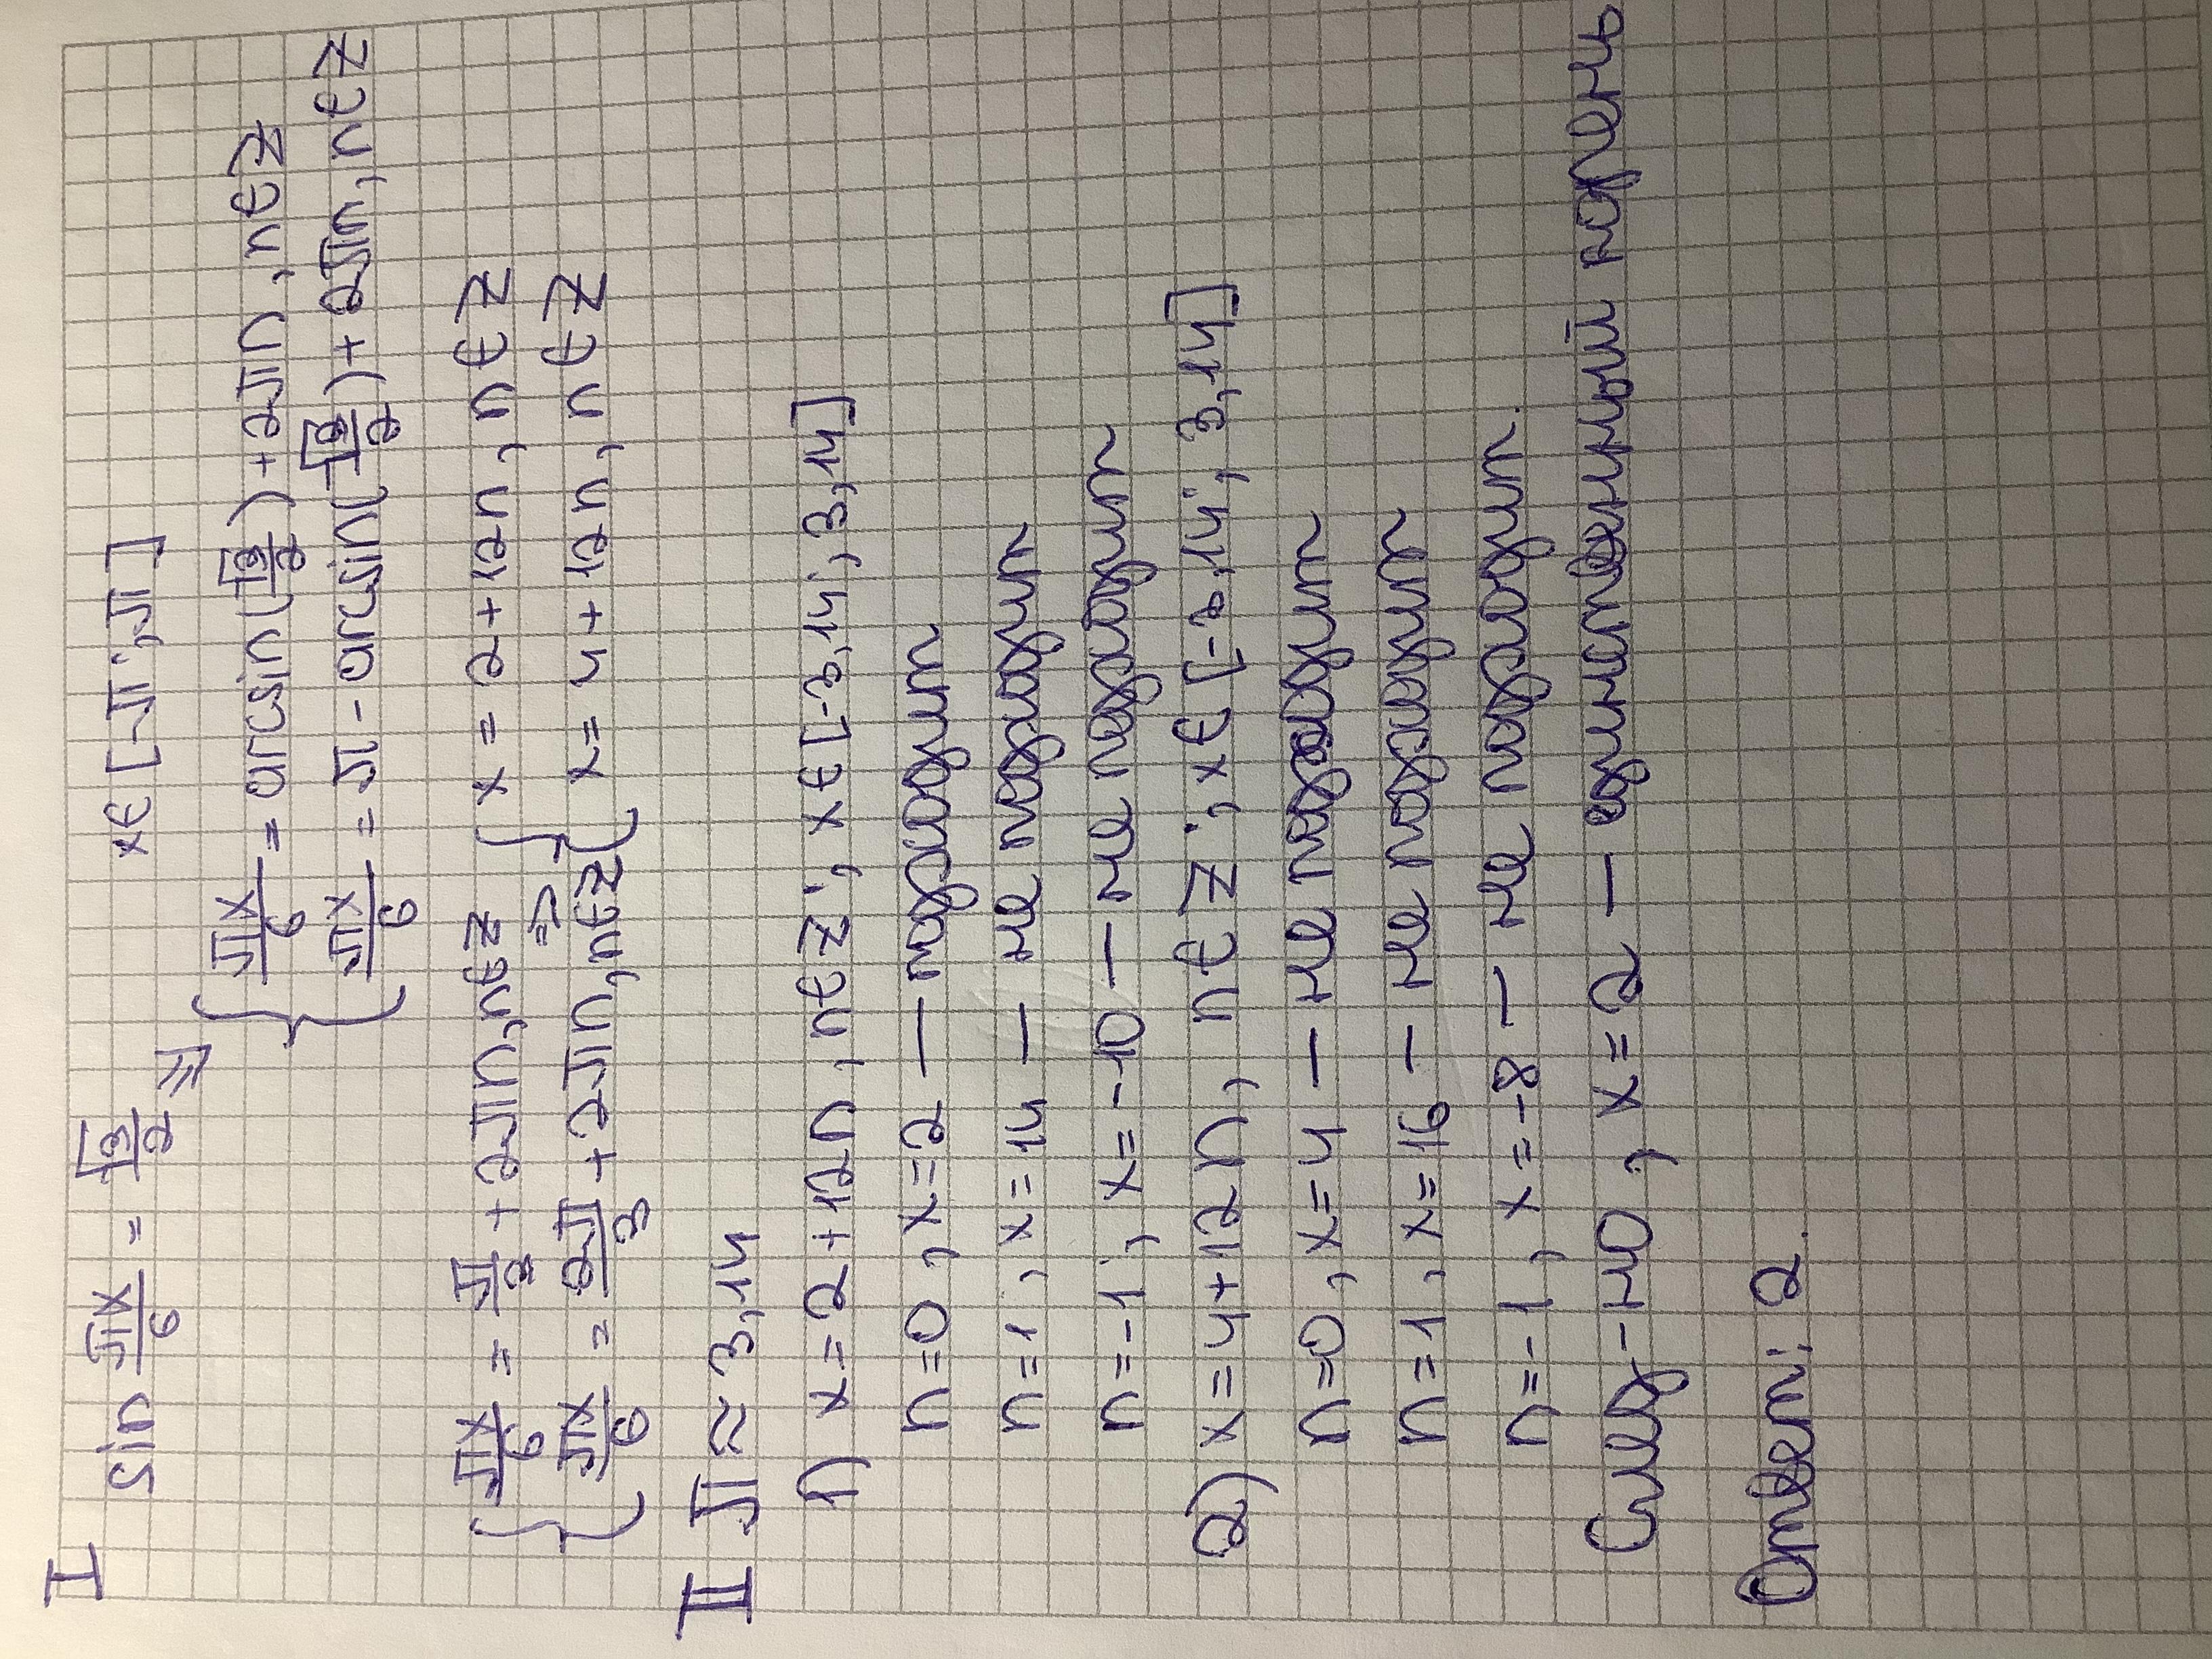 I sin πx/6 = √3/2 x∈[-π; π]
⇒ { πx/6 = arcsin(√3/2) + 2πn, n∈Z
πx/6 = π - arcsin(√3/2) + 2πn, n∈Z
{ πx/6 = π/3 + 2πn, n∈Z ⇒ { x = 2 + 12n, n∈Z
πx/6 = 2π/3 + 2πn, n∈Z x = 4 + 12n, n∈Z
II π ≈ 3,14
1) x = 2 + 12n, n∈Z; x∈[-3,14; 3,14]
n=0, x=2 — подходит
n=1, x=14 — не подходит
n=-1, x=-10 — не подходит
2) x=4+12n, n∈Z; x∈[-3,14; 3,14]
n=0, x=4 — не подходит
n=1, x=16 — не подходит
n=-1, x=-8 — не подходит.
След-но, x=2 — единственный корень
Ответ: 2.